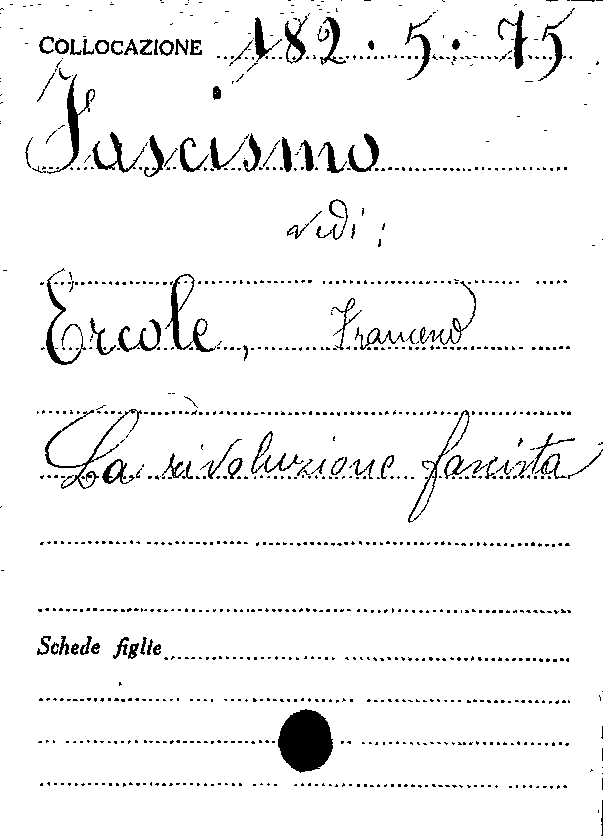 COLLOCAZIONE 182.5.75
Fascismo
vedi:
Ercole, Francesco
La rivoluzione fascista
Schede figlie